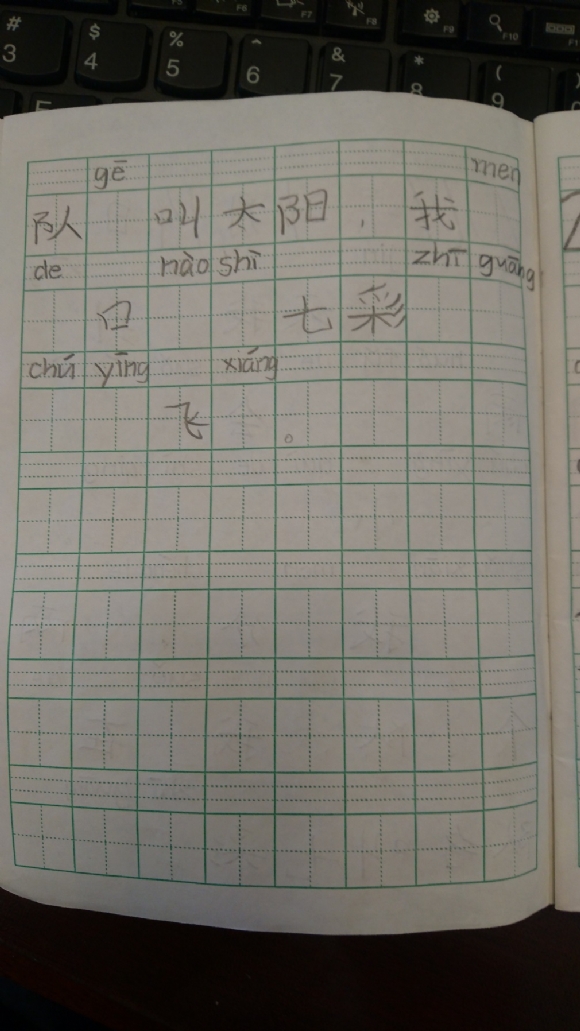 F6 F7 F8 F9 F10
# $ % ^ & * (
3 4 5 6 7 8 9
gē men
队 叫太阳，我
de nào shì zhī guāng
口 七彩
chú yīng xiáng
飞 。